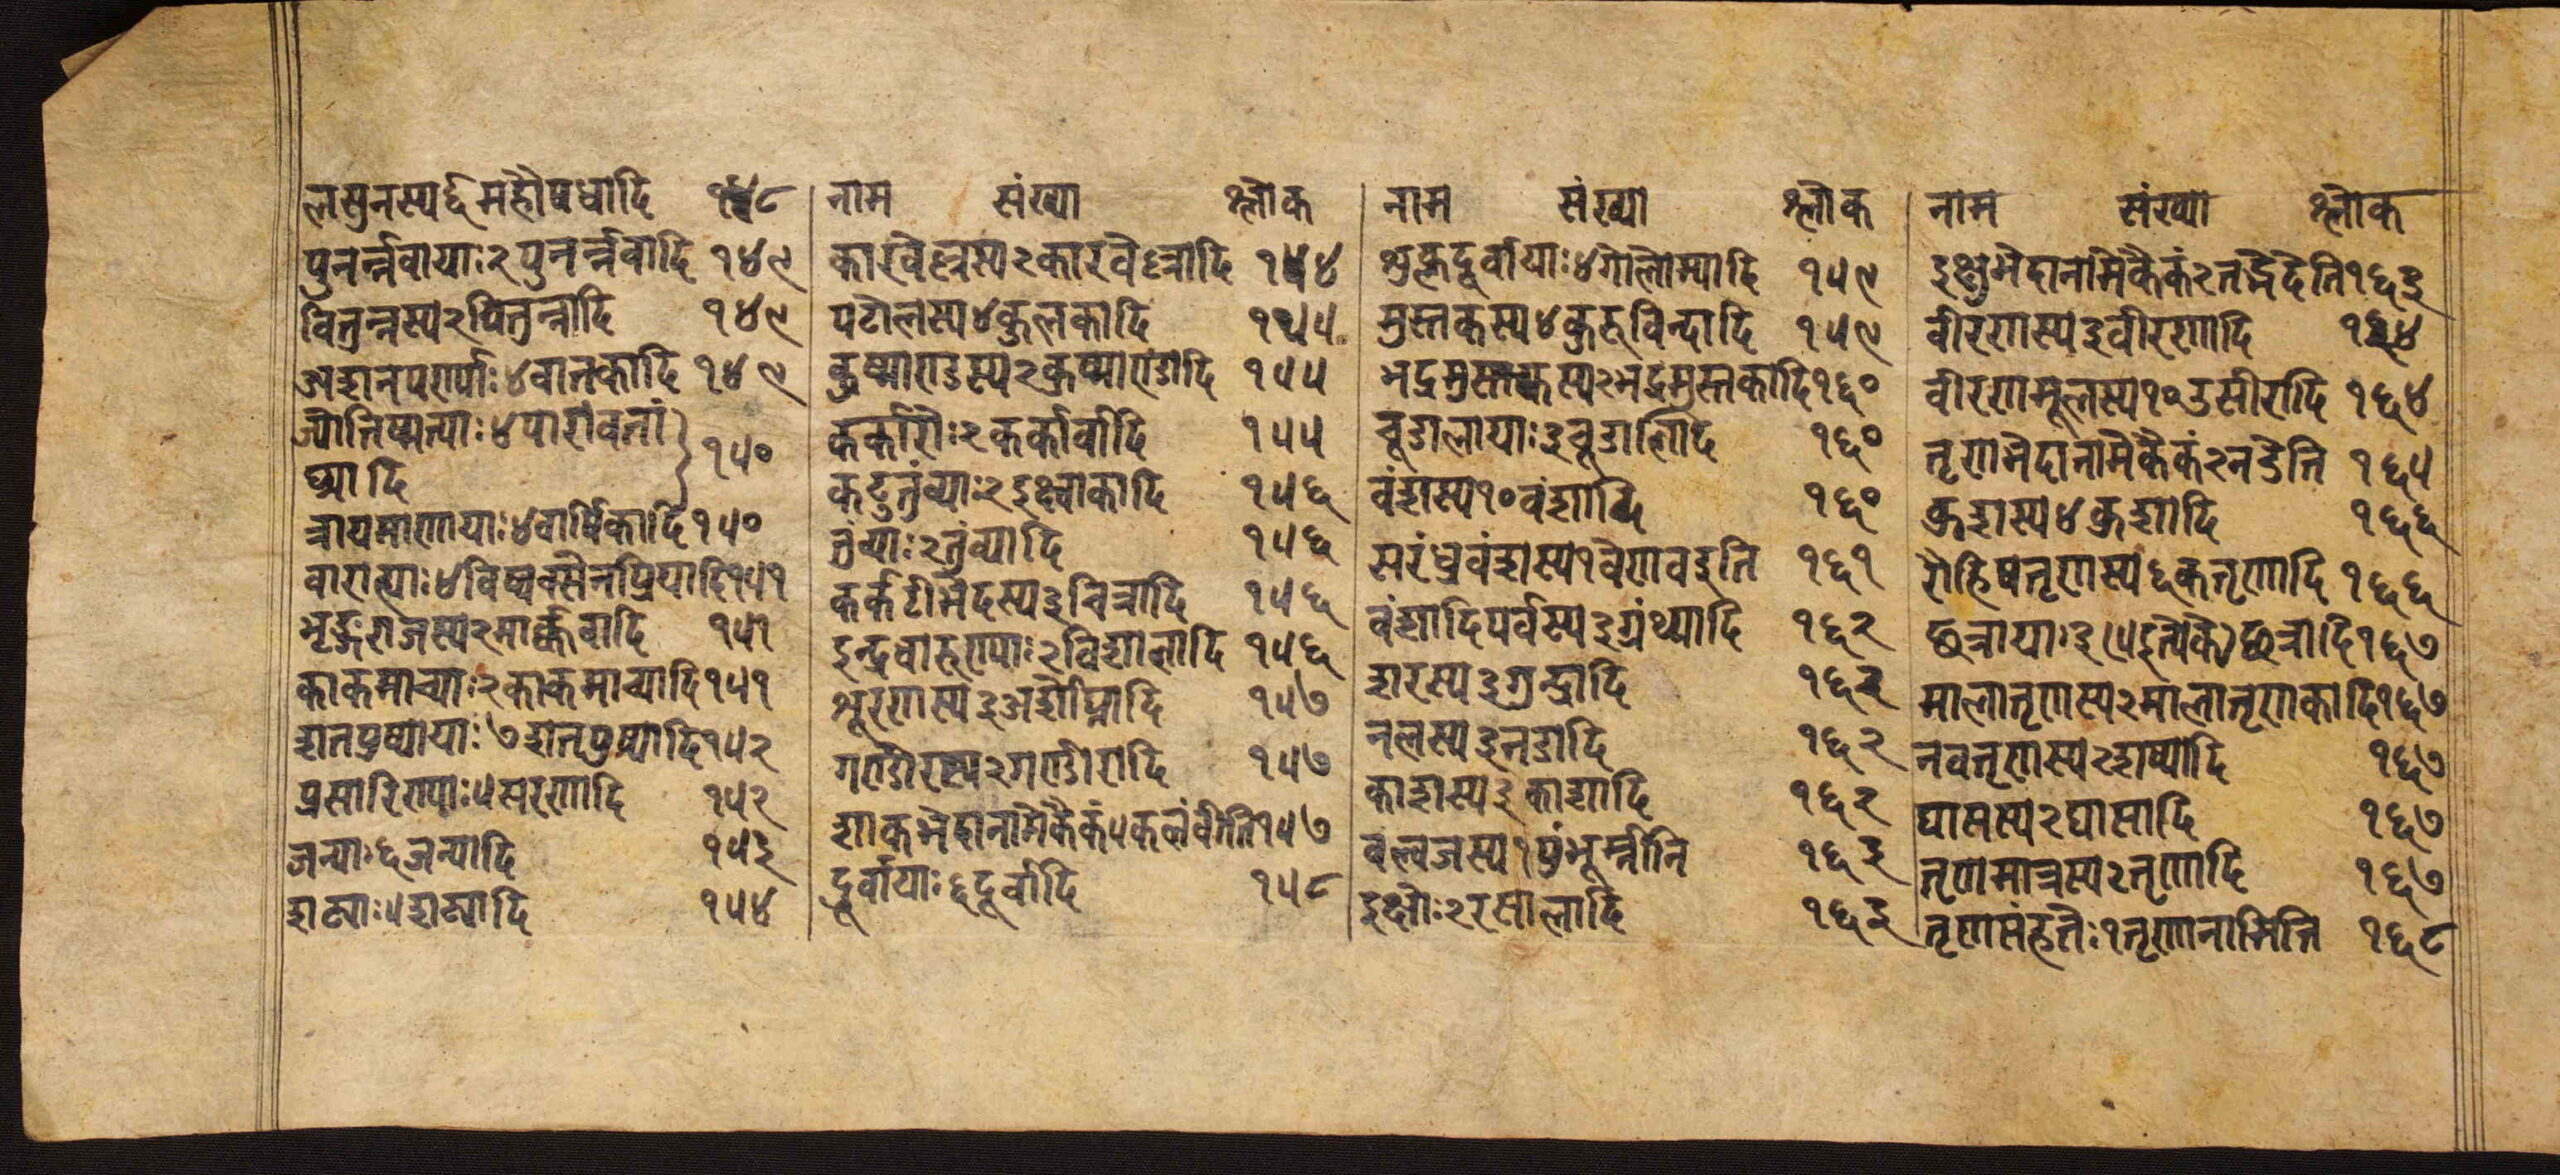 लसुनस्य६महौषधादि १४८
पुनर्न्नवायाः२पुनर्न्नवादि १४९
वितुन्नस्य२वितुन्नादि १४९
अशनपर्ण्याः४वातकादि १४९
ज्योतिष्मत्याः४पारावतां
घ्र्यादि १५०
त्रायमाणायाः४वार्षिकादि १५०
वाराह्याः४विष्वक्सेनप्रियादि १५१
भृङ्गराजस्य२मार्क्कवादि १५१
काकमाच्याः२काकमाच्यादि १५१
शतपुष्पायाः७शतपुष्पादि १५२
प्रसारिण्याः५सरणादि १५२
जन्याः६जन्यादि १५३
शट्याः५शट्यादि १५४
नाम संख्या श्लोक
कारवेल्लस्य२कारवेल्लादि १५४
पटोलस्य४कुलकादि १५५
कुष्माण्डस्य२कुष्माण्डादि १५५
कर्कारोः२कर्कार्वादि १५५
कटुतुंव्याः२इक्ष्वाकादि १५६
तुंव्याः२तुंव्यादि १५६
कर्कटीभेदस्य३चित्रादि १५६
इन्द्रवारुण्याः२विशालादि १५६
शूरणस्य३अर्शोघ्नादि १५७
गण्डीरस्य२गण्डीरादि १५७
शाकभेदानामेकैकं५कलंवीति १५७
दूर्वायाः६दूर्वादि १५८
नाम संख्या श्लोक
शुक्लदूर्वायाः४गोलोम्यादि १५९
मुस्तकस्य४कुरुविन्दादि १५९
भद्रमुस्तकस्य२भद्रमुस्तकादि १६०
चूडालायाः३चूडालादि १६०
वंशस्य१०वंशादि १६०
सरंध्रवंशस्य१वेणवइति १६१
वंशादिपर्वस्य३ग्रंथ्यादि १६२
शरस्य३गुन्द्रादि १६२
नलस्य३नडादि १६२
काशस्य३काशादि १६२
वल्वजस्य१पुंभूम्नीनि १६३
इक्षोः२रसालादि १६३
नाम संख्या श्लोक
इक्षुभेदानामेकैकं२तद्भेदेति १६३
वीरणस्य३वीरणादि १६४
वीरणमूलस्य१०उसीरादि १६४
तृणभेदानामेकैकं२नडेति १६५
कुशस्य४कुशादि १६६
रोहिषतृणस्य६कतृणादि १६६
छत्रायाः३(५इत्येके)छत्रादि १६७
मालातृणस्य२मालातृणकादि १६७
नवतृणस्य२शष्पादि १६७
घासस्य२घासादि १६७
तृणमात्रस्य२तृणादि १६७
तृणसंहतेः१तृणानामिति १६८